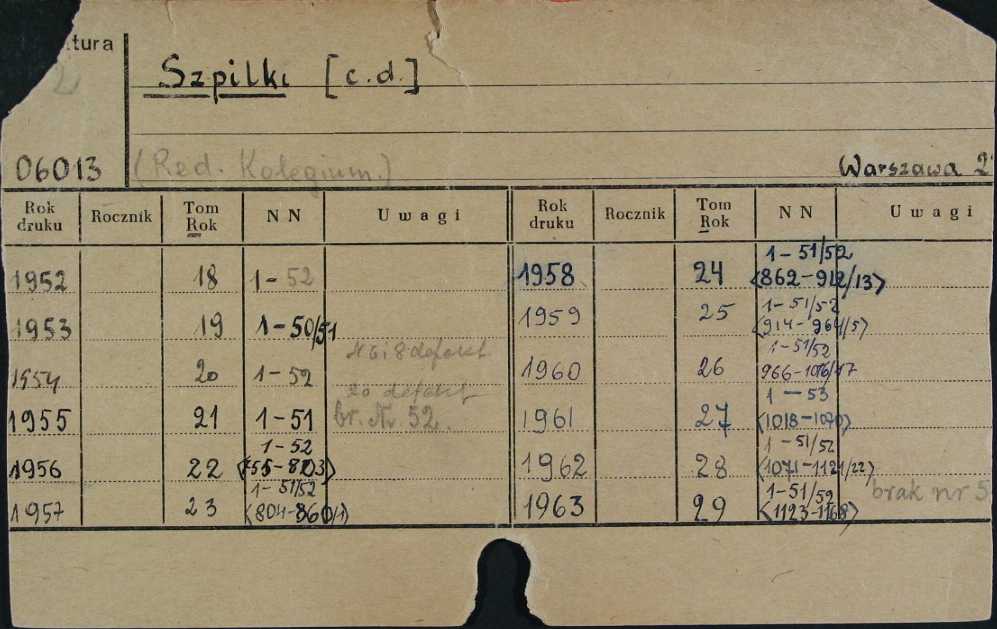 tura
Szpilki [c.d.]
06013 (Red. Kolegium.) Warszawa
Rok druku Rocznik Tom Rok NN Uwagi Rok druku Rocznik Tom Rok NN Uwagi
1952 18 1-52 1958 24 1-51/52 <862-912/13>
1953 19 1-50/51 1959 25 1-51/52 <914-964/5>
N 6 i 8 defekt
1954 20 1-52 1960 26 1-51/52 966-1016/17
20 defekt
1955 21 1-51 br. Nr. 52. 1961 27 1-53 <1018-1070>
1956 22 1-52 1962 28 1-51/52 <1071-1121/22>
1957 23 1-51/52 <804-860/1> 1963 29 1-51/52 brak nr 5